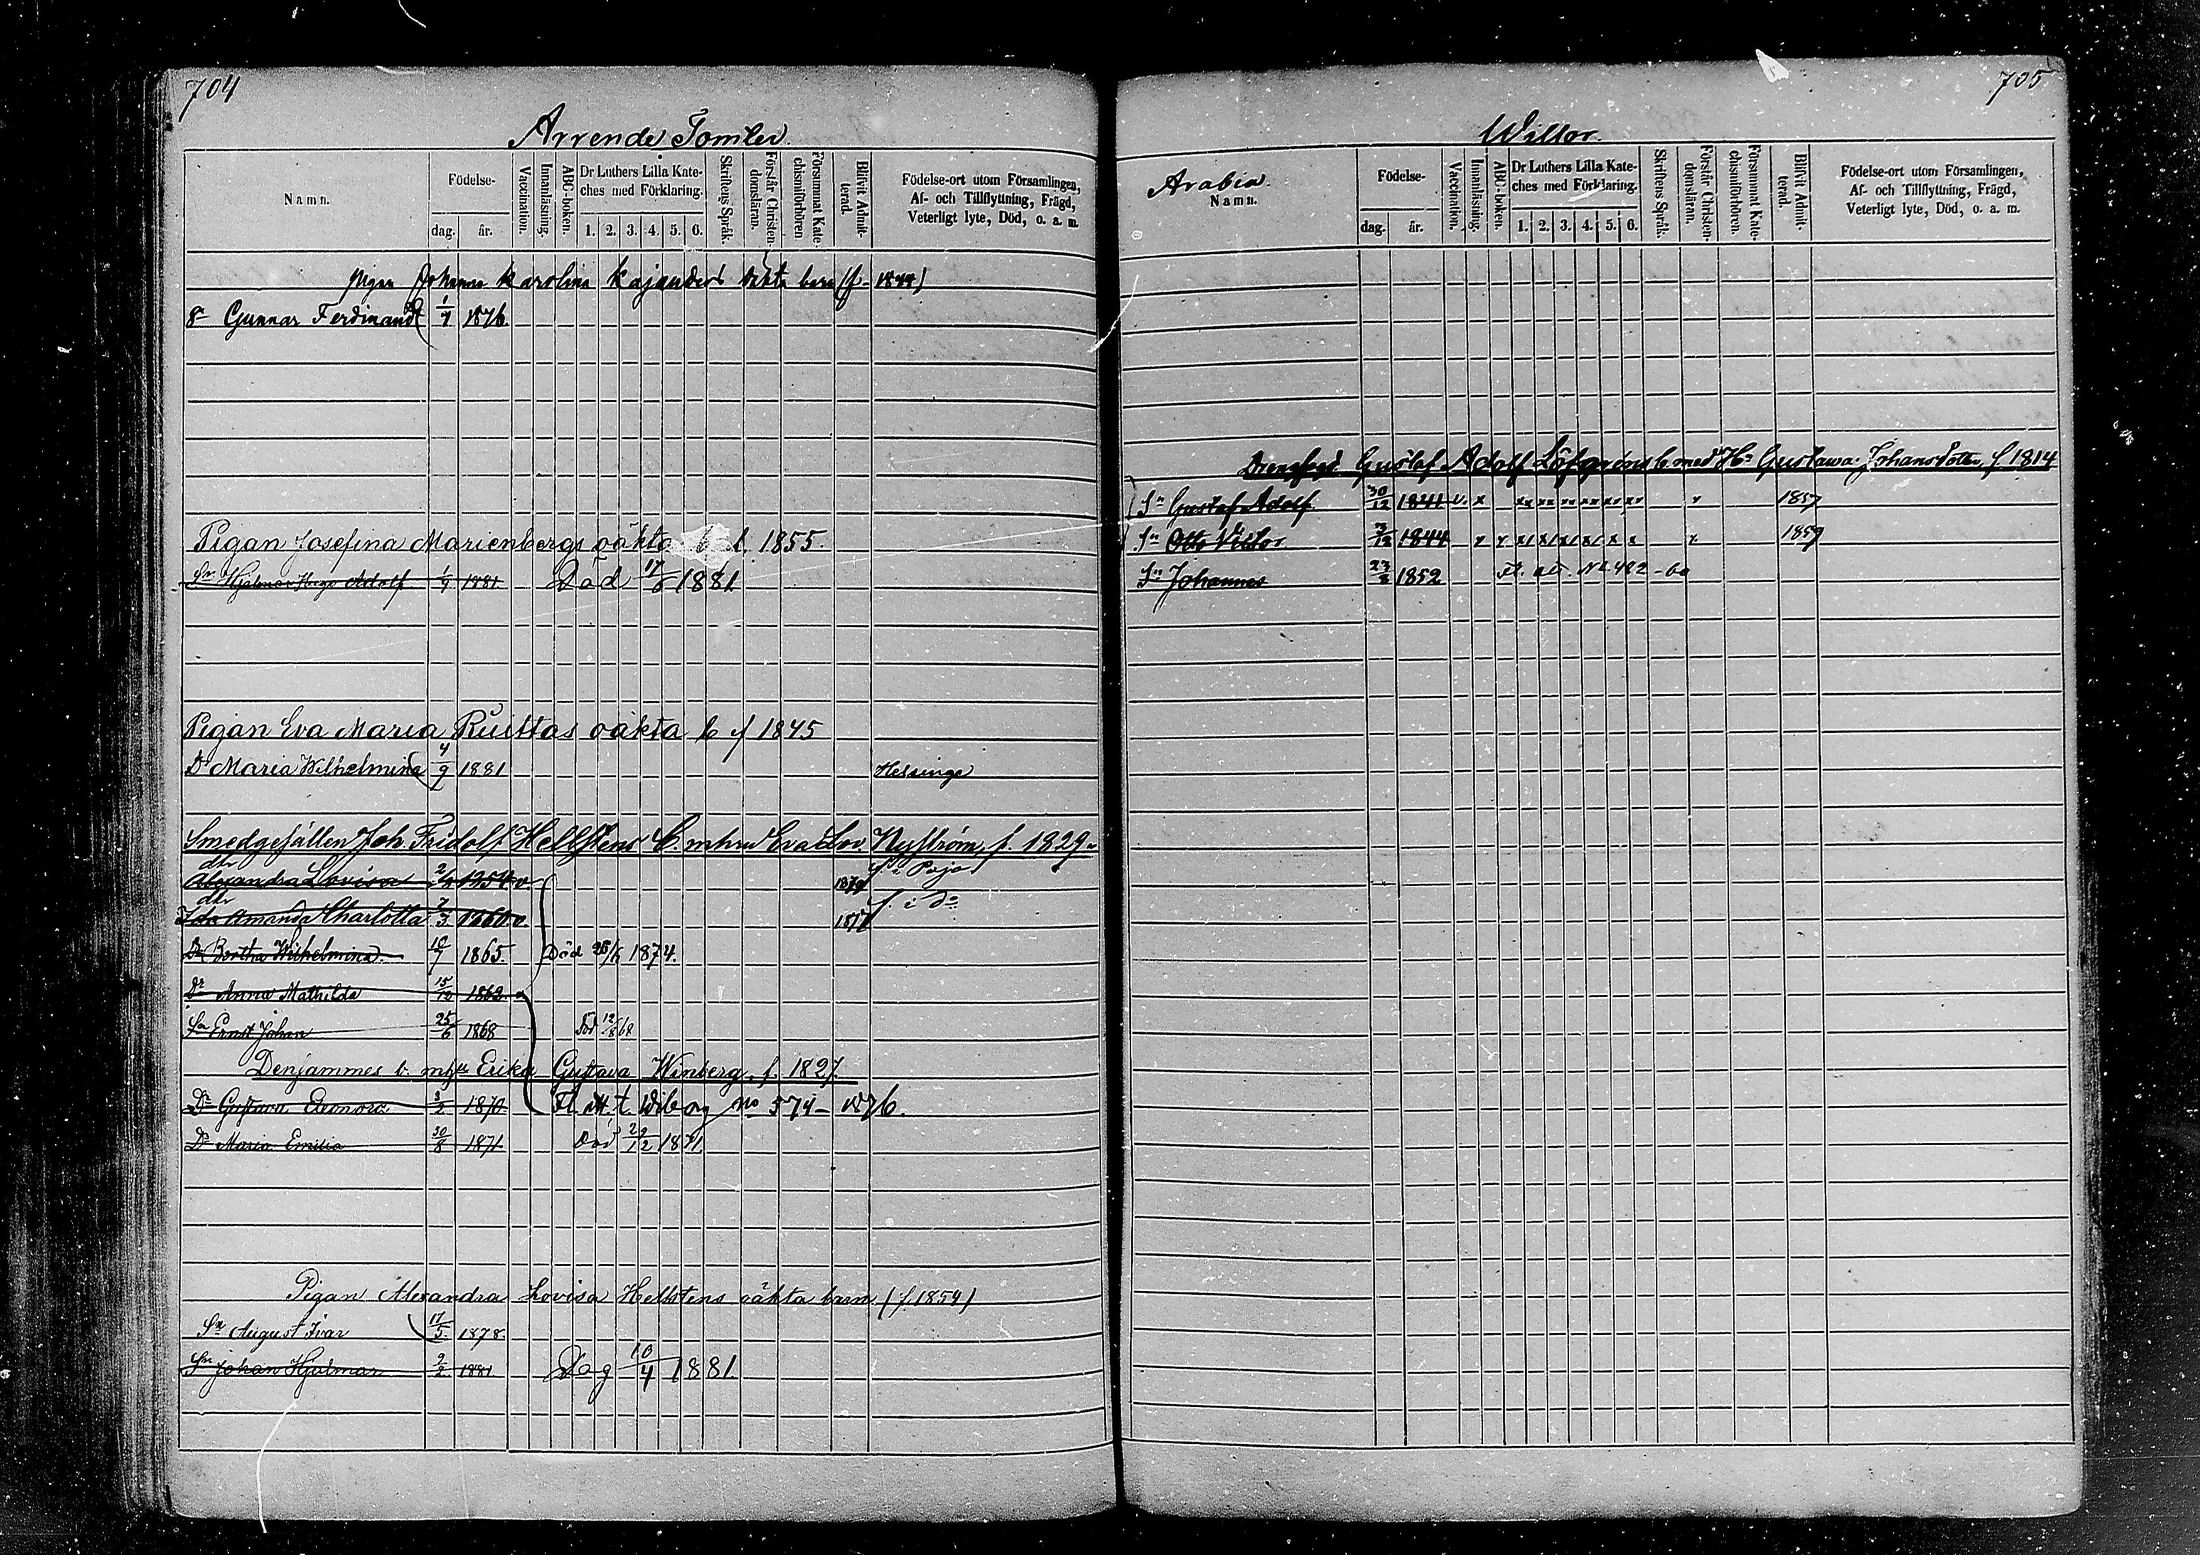 704
Arrende Tomter
Namn.
Födelse-
dag. år.
Vaccination.
Innanläsning.
ABC-boken.
Dr Luthers Lilla Kateches med Förklaring.
1. 2. 3. 4. 5. 6.
Skriftens Språk.
Förstår Christendomsläran.
Försummat Katechismiförhören.
Blifvit Admitterad.
Födelse-ort utom Församlingen,
Af- och Tillflyttning, Frägd,
Veterligt lyte, Död, o. a. m.
pigan Johanna Karolina Kajanders barn (f. 1844)
Sn Gunnar Ferdinand 1/7 1876.
Pigan Josefina Marienbergs oäkta b. f. 1855.
Sn Hjalmar Hugo Adolf 1881. Död 17/6 1881.
Pigan Eva Maria Ruittas oäkta b f 1845
Dr Maria Wilhelmina 4/9 1881 Helsinge
Smedgesällen Joh. Fridolf Hellstens b. m hu Eva Lov. Nyström, f. 1829.
dtr Alexandra Lovisa 1854 v f. i Pojo
dtr Ida Amanda Charlotta 7/3 1860. v. f. i do
Dr Bertha Wilhelmina. 1865. Död 1874.
Dr Anna Mathilda 15/12 1862. v
Sn Ernst Johan 25/6 1868 Död 12/8 68
Densammes b. m hu Erika Gustava Winberg, f. 1827.
Dr Gustava Eleonora 3/2 1870 Fl att t. Wiborg No 574 - 1876.
Dr Maria Emilia 30/8 1871 Död 29/12 1871.
Pigan Alexandra Lovisa Hellstens oäkta barn (f. 1854)
Sn August Ivar 17/5 1878.
Sn Johan Hjalmar 9/2 1881. Dog 10/4 1881.
705
Willor.
Arabia.
Namn.
Födelse-
dag. år.
Vaccination.
Innanläsning.
ABC-boken.
Dr Luthers Lilla Kateches med Förklaring.
1. 2. 3. 4. 5. 6.
Skriftens Språk.
Förstår Christendomsläran.
Försummat Katechismiförhören.
Blifvit Admitterad.
Födelse-ort utom Församlingen,
Af- och Tillflyttning, Frägd,
Veterligt lyte, Död, o. a. m.
Gustaf Adolf Löfgrens b med H: Gustawa Johansdotter f 1814
Sn Gustaf Adolf 30/12 1841 v. x xx xx xx xx xx xx x 1857
Sn Otto Victor 1844 x x x x x x x x x 1859
Sn Johannes 1852 fl. att. No 482 - 60